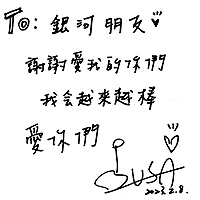 To: 銀河朋友
謝謝愛我的你們
我会越来越棒
愛你們
LUSA
2023.2.8.